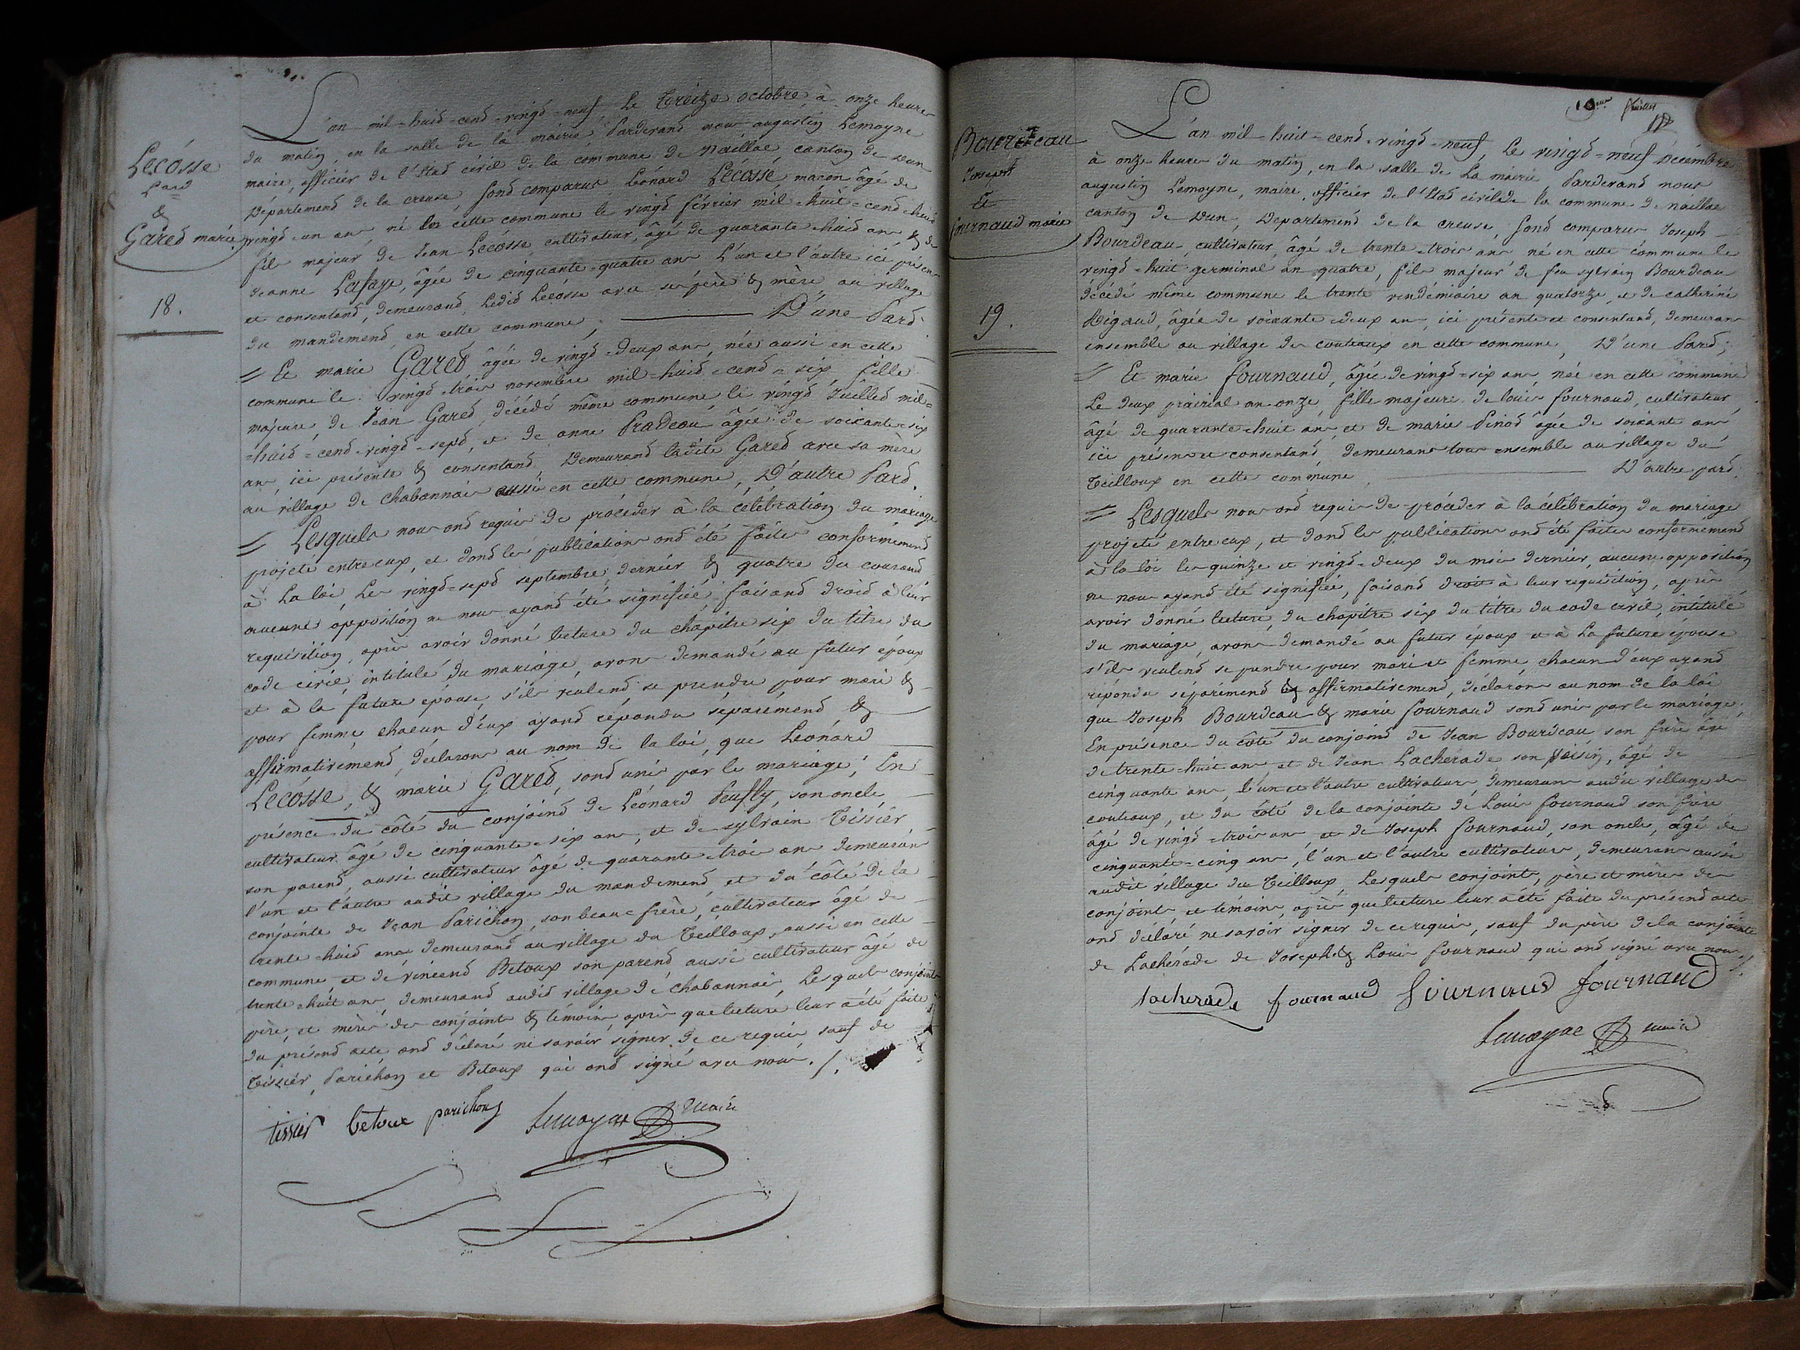 Lecosse
Lard
&
Gared marie
18.
L'an mil-huid-cend-vingd-neuf, le treize octobre, à onze heures
du matin, en la salle de la mairie, Pardevand nous augustin Lemoyne
maire, officier de l'Etad civil de la commune de naillac canton de Dun
Département de la creuse, sond comparus Léonard Lécosse, macon âgé de
vingd-un ans né en cette commune le vingd février mil-huit-cend-huit
fils majeur de Jean Lecosse, cultivateur, âgé de quarante-huid ans & de
Jeanne Lafaye, âgée de cinquante-quatre ans L'un et l'autre ici présens
et consentand, demeurand Ledid Lécosse avec ses père & mère au village
du mandemend, en cette commune, D'une Pard.
= Et marie Gared âgée de vingd-deux ans, née aussi en cette
commune le vingd-trois novembre mil-huid-cend-six fille
majeure de Jean Gared, décédé même commune le vingd Juilled mil-
-huid-cend-vingd-sepd, et de anne Pradeau âgée de soixante-six
ans, ici présente & consentand Demeurand ladite Gared avec sa mère
au village de chabannais aussi en cette commune, D'autre Pard.
= Lesquels nous ond requis de procéder à la célébration du mariage
projeté entre eux, et dond les publications ond été faites conformémend
à la loi, les vingd-sepd septembre dernier & quatre du courand
aucune opposition ne nous ayand été signifiée faisand droid à leur
requisition, après avoir donné lecture du chapitre six du titre du
code civil, intitulé du mariage, avons demandé au futur époux
et à la future épouse, s'ils veulend se prendre pour mari &
pour femme, chacun d'eux ayand répondu séparémend &
affirmativemend, déclarons au nom de la loi, que Léonard
Lecosse, & marie Gared, sond unis par le mariage; En
présence du côté du conjoind de Léonard Peufly, son oncle
cultivateur âgé de cinquante-six ans, et de sylvain Tissier
son parend, aussi cultivateur âgé de quarante-trois ans demeurans
l'un et l'autre audit village du mandemend, et du côté de la
conjointe de Jean Parichon, son beau-frère, cultivateur âgé de
trente-huid ans demeurand au village du Teilloux, aussi en cette
commune, et de vincend Betoux son parend aussi cultivateur âgé de
trente-huit ans, demeurand audid village de chabannais, Lesquels conjoints
père, et mères des conjoints & témoins après que lecture leur a été faite
du présend acte, ond déclaré ne savoir signer de ce requis, sauf de
Tissier, Parichon et Betoux qui ond signé avec nous. /.
tissier betoux parichon Lemoyne maire
19me
Bourdeau
Joseph
&
fournaud marie
19.
L'an mil-huit-cend-vingd-neuf, le vingd-neuf Décembre
à onze heures du matin, en la salle de la mairie Pardevand nous
augustin Lemoyne, maire, officier de l'Etad civil de la commune de naillac
canton de Dun, Départemend de la creuse, sond comparus Joseph
Bourdeau, cultivateur, âgé de trente-trois ans né en cette commune le
vingd-huit germinal an quatre, fils majeur de feu sylvain Bourdeau
décédé même commune le trente vendémiaire an quatorze, et de catherine
Rigaud, âgée de soixante-deux ans, ici présente et consentand, demeurans
ensemble au village des couteaux en cette commune, D'une Pard;
= Et marie fournaud, âgée de vingd-six ans, née en cette commune
Le deux prairial an onze, fille majeure de louis fournaud, cultivateur
âgé de quarante-huit ans, et de marie Pinod âgée de soixante ans
ici présens et consentand, demeurans tous ensemble au village du
Teilloux en cette commune, D'autre pard.
= Lesquels nous ond requis de procéder à la célébration du mariage
projeté entre eux, et dond les publications ond été faites conformémend
à la loi les quinze et vingd-deux du mois dernier, aucune opposition
ne nous ayand été signifiée, faisand droit à leur requisition, après
avoir donné lecture, du chapitre six du titre du code civil, intitulé
du mariage, avons demandé au futur époux et à la future épouse
s'ils veulend se prendre pour mari et femme, chacun d'eux ayand
répondu séparémend & affirmativemend, déclarons au nom de la loi
que Joseph Bourdeau & marie fournaud sond unis par le mariage;
En présence du côté du conjoind de Jean Bourdeau, son frère âgé
de trente-huit ans et de Jean Lacherade son voisin, âgé de
cinquante ans l'un et l'autre cultivateurs, demeurans audit village des
couteaux, et du côté de la conjointe de Louis fournaud son frère
âgé de vingd-trois ans, et de Joseph fournaud, son oncle, âgé de
cinquante-cinq ans, l'un et l'autre cultivateurs, demeurans aussi
audit village du Teilloux, Lesquels conjoints, père et mères des
conjoints et témoins, après que lecture leur a été faite du présend acte
ond déclaré ne savoir signer de ce requis, sauf du père de la conjointe
de Lacherade de Joseph & Louis fournaud qui ond signé avec nous. /.
lacherade fournaud fournaud fournaud
Lemoyne maire